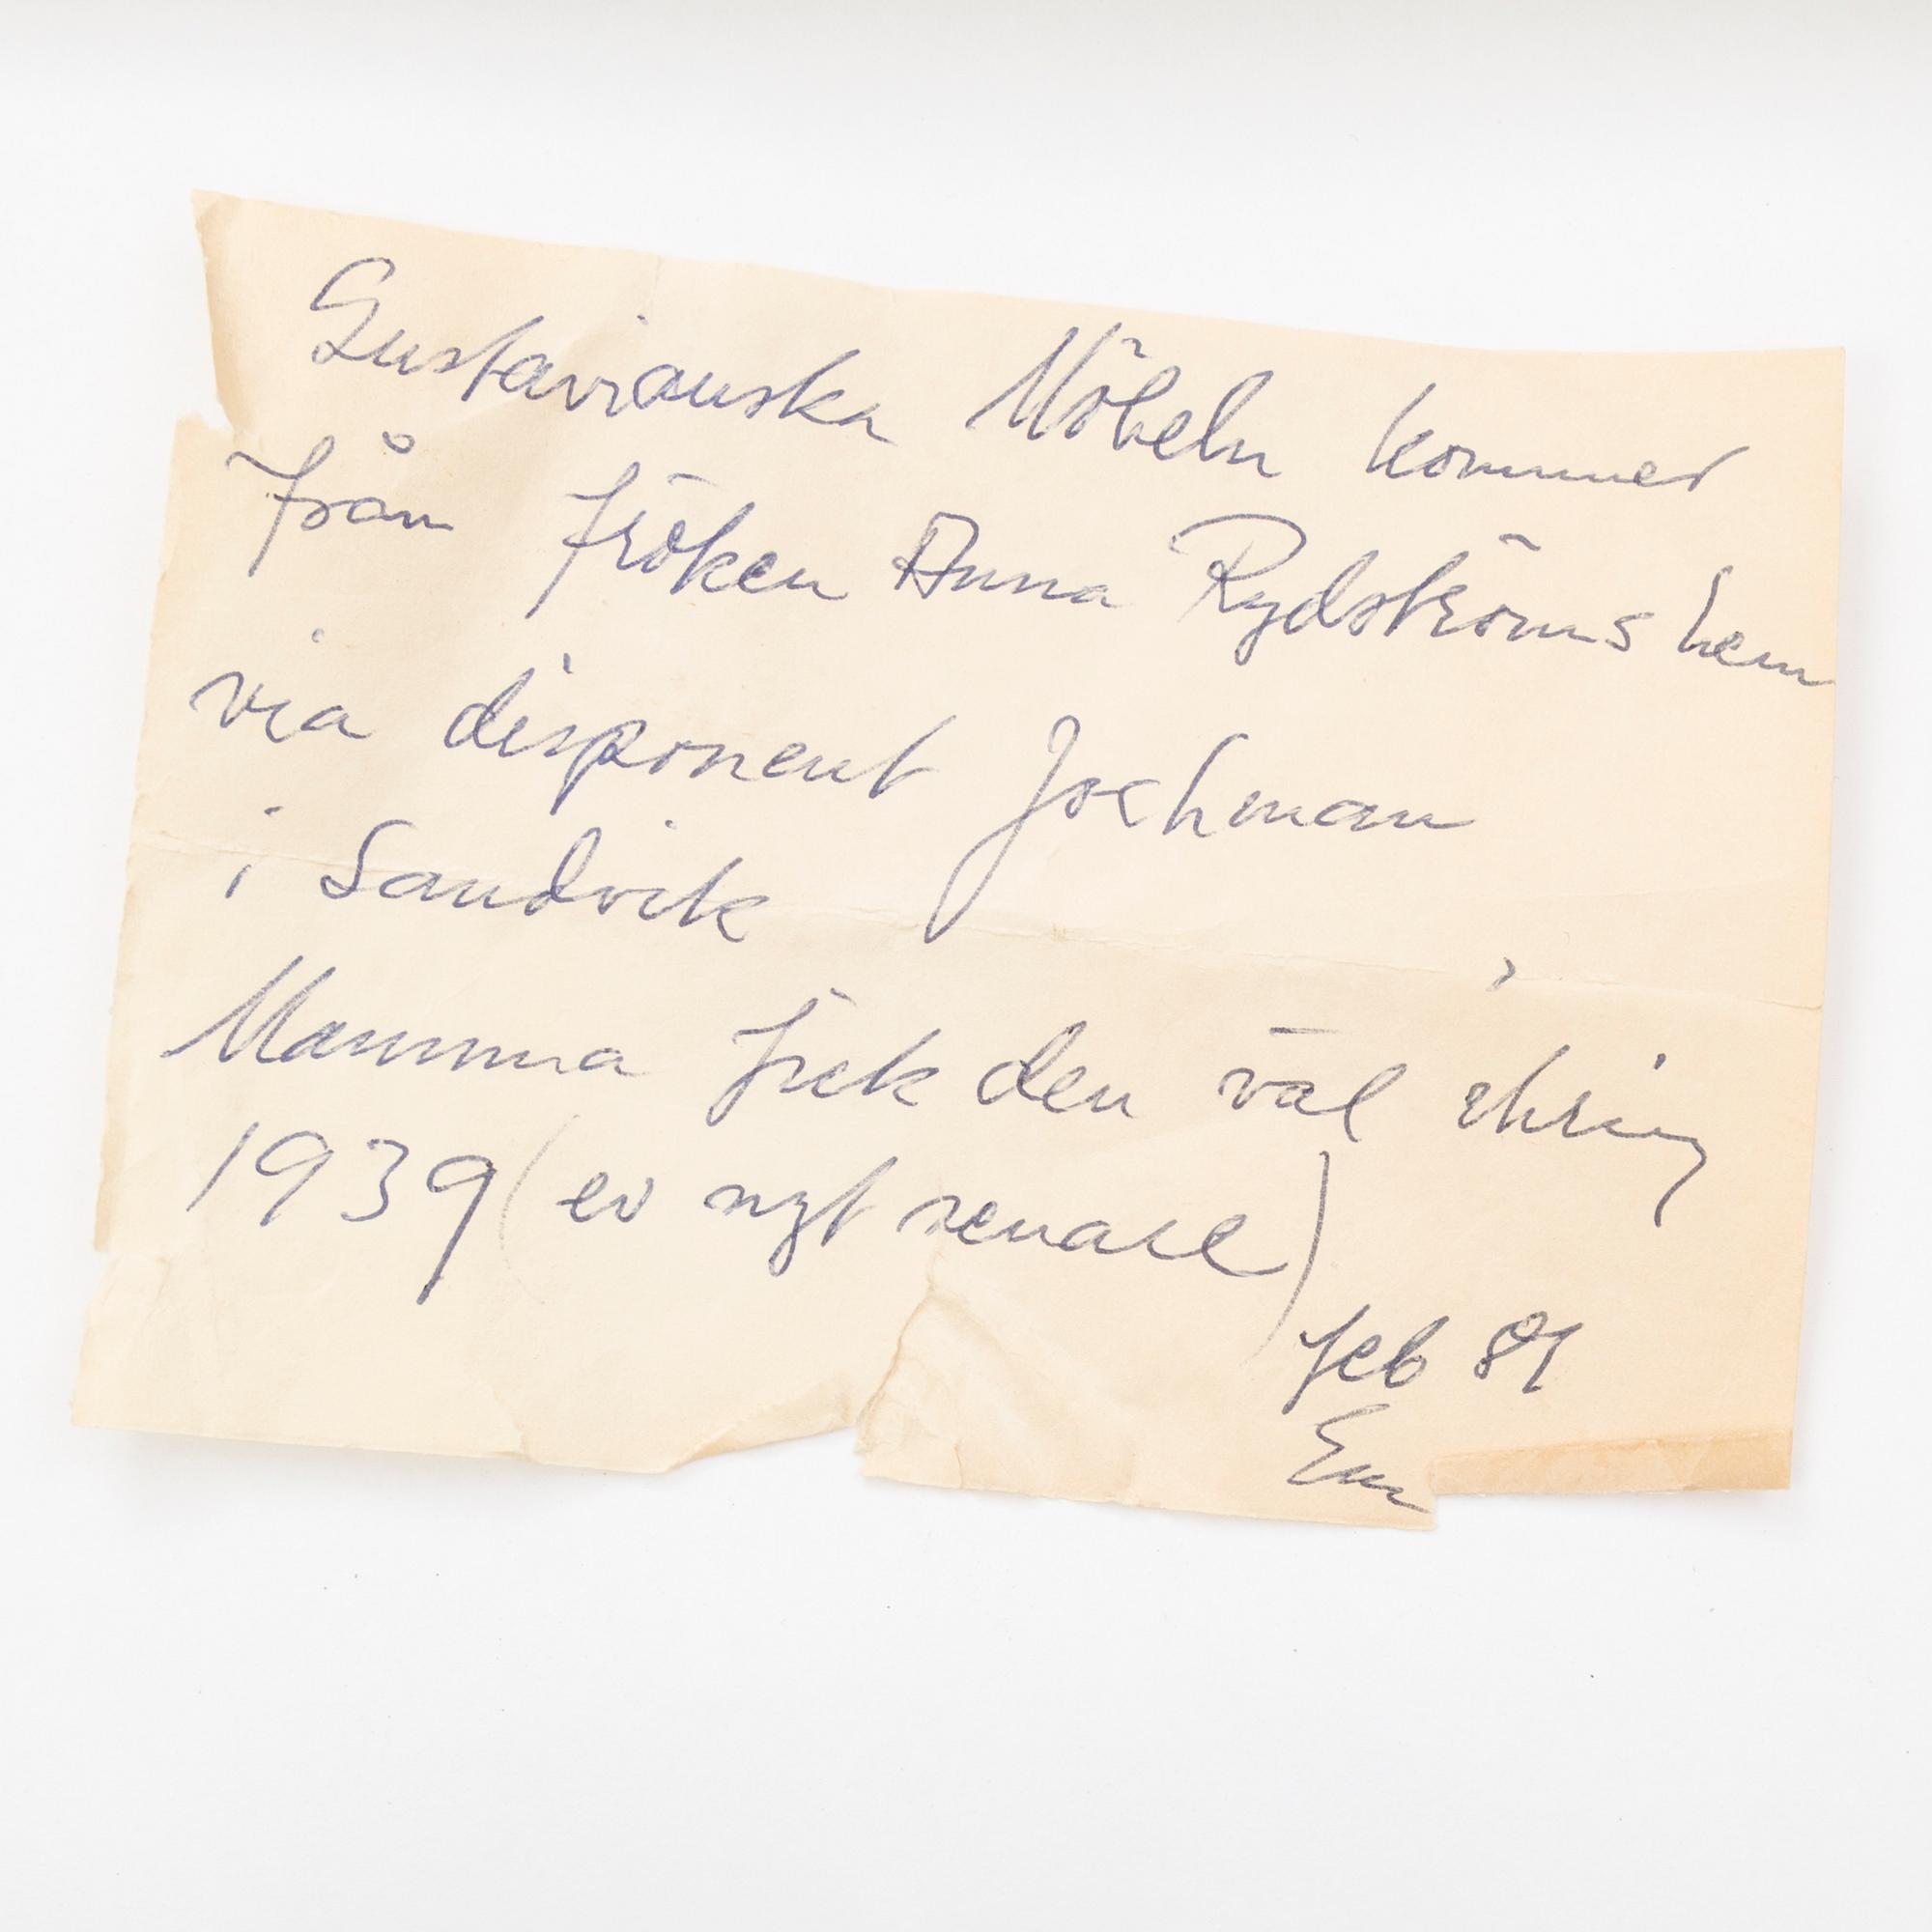 Gustavianska Möbeln kommer
från fröken Anna Rydströms hem
via disponent Jochman
i Sandvik
Mamma fick den väl ikring
1939 (ev ngt senare)
feb 81
Em